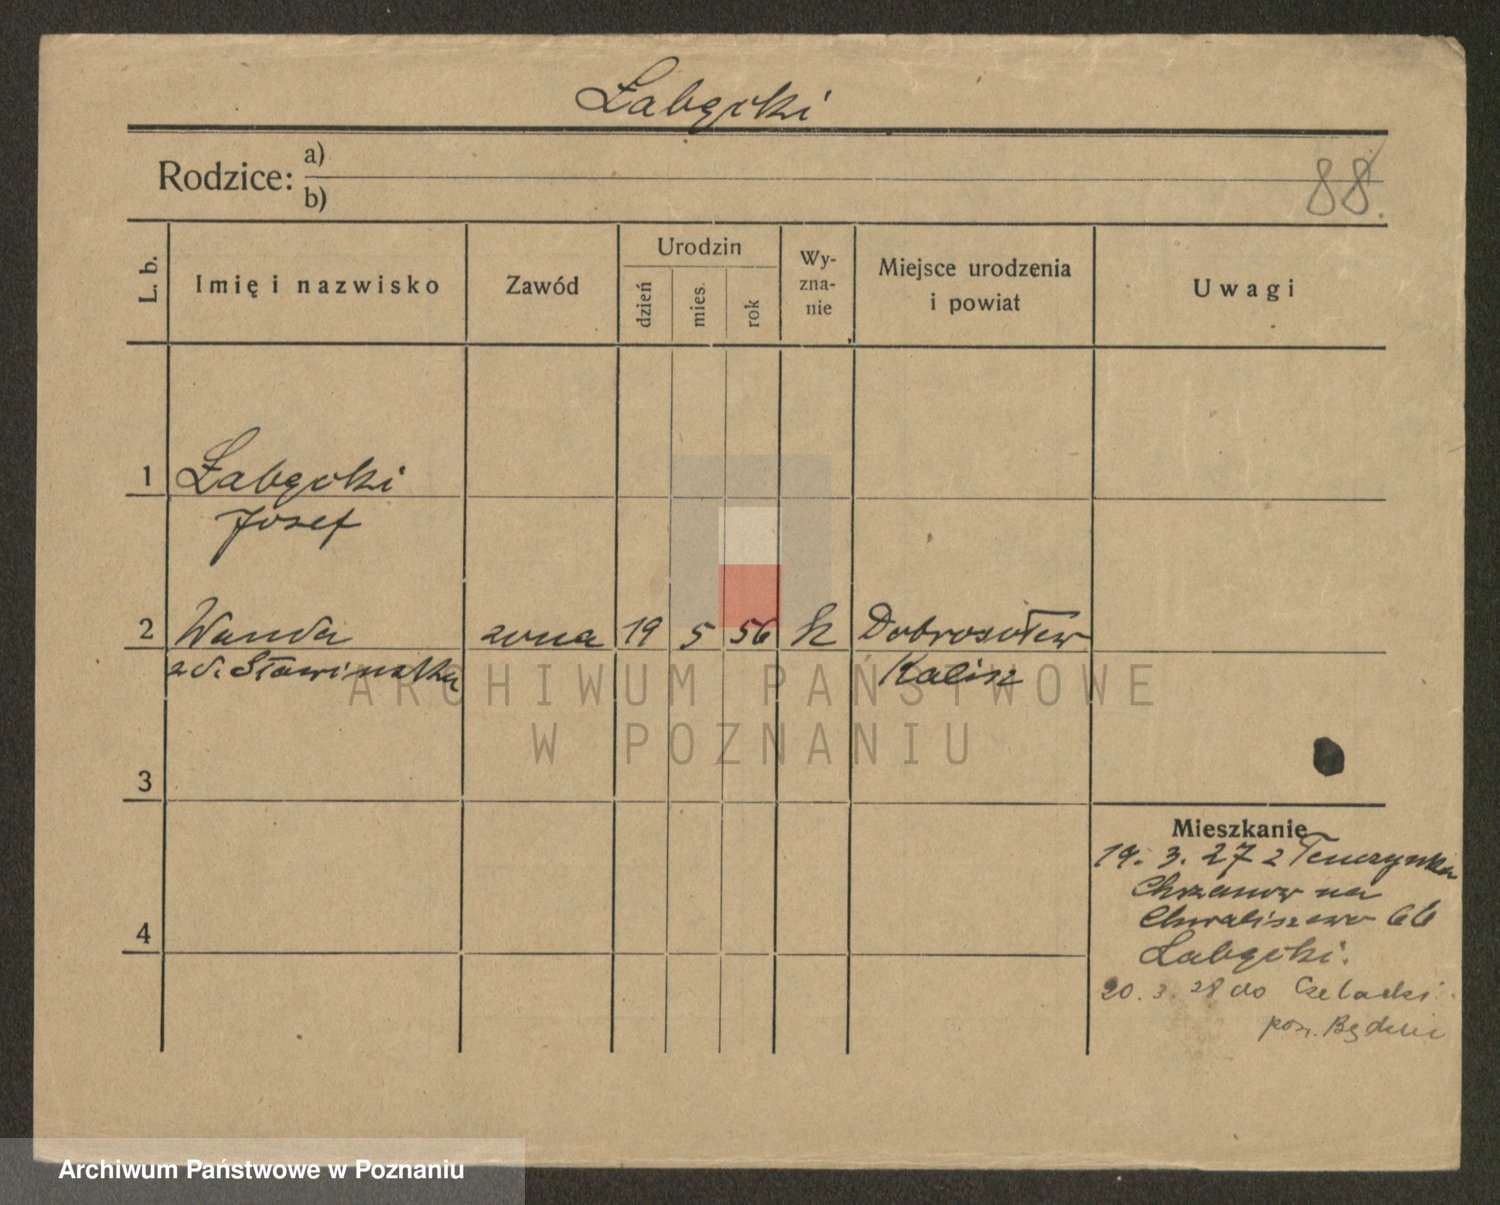 Łabęcki
Rodzice: a)
b)
88.
L. b.
Imię i nazwisko
Zawód
Urodzin
dzień
mies.
rok
Wy-
zna-
nie
Miejsce urodzenia
i powiat
Uwagi
1 Łabęcki
Josef
2 Wanda zona 19 5 56 k Dobrosołow
zd. Sławinska Kalisz
3
Mieszkanie
19. 3. 27 z Tenczynka
Chrzanow na
Chwaliszewo 66
Łabęcki.
4
20. 3. 28 do Czeladzi
pow. Będzin
ARCHIWUM PAŃSTWOWE
W POZNANIU
Archiwum Państwowe w Poznaniu